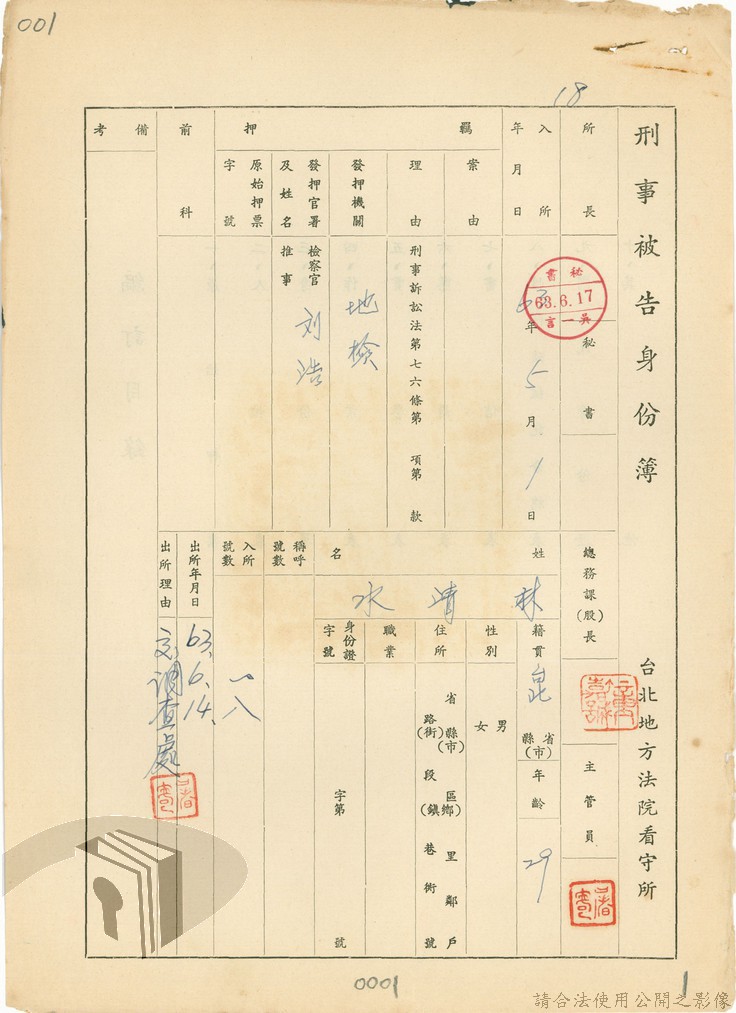 001
18
刑事被告身份簿
台北地方法院看守所
所長
秘書
總務課(股)長
主管員
秘書
63.6.17
吳一言
入所
年月日
63年5月1日
羈押
案由
理由
刑事訴訟法第七六條第 項第 款
發押機關
地檢
發押官署及姓名
檢察官
推事
刘浩
原始押票字號
前科
備考
姓名
林靖水
籍貫
省縣(市)
年齡
29
性別
男
女
住所
省縣(市)區(鄉鎮)里鄰戶
路(街)段巷衖號
職業
身份證字號
字第 號
稱呼號數
入所號數
一八
出所年月日
63.6.14.
出所理由
交調查處
0001
1
請合法使用公開之影像